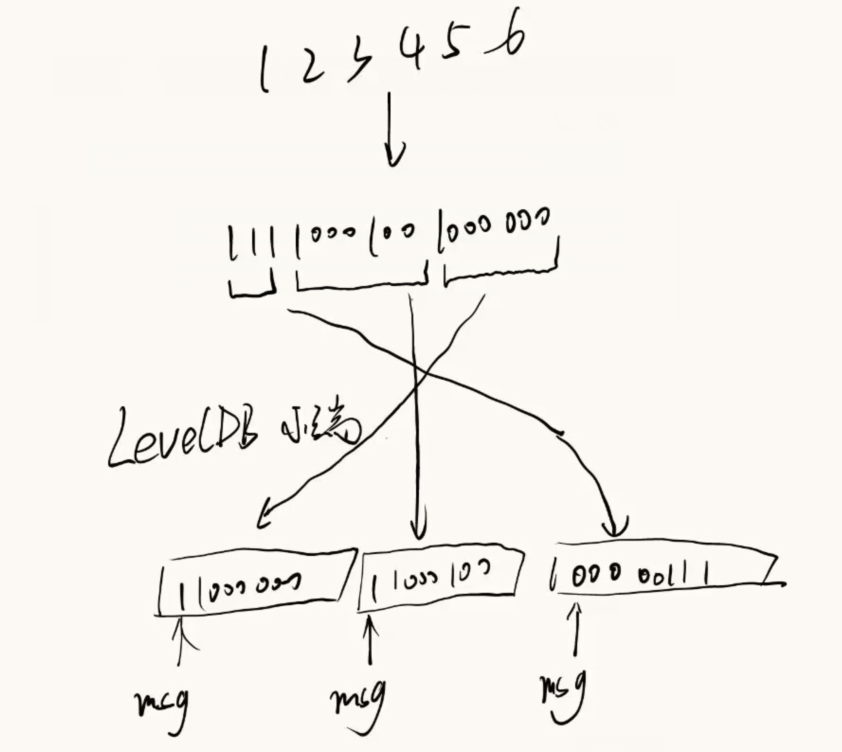 1 2 3 4 5 6
111 1000100 1000000
LevelDB 小端
11000000 11000100 00000111
msg msg msg